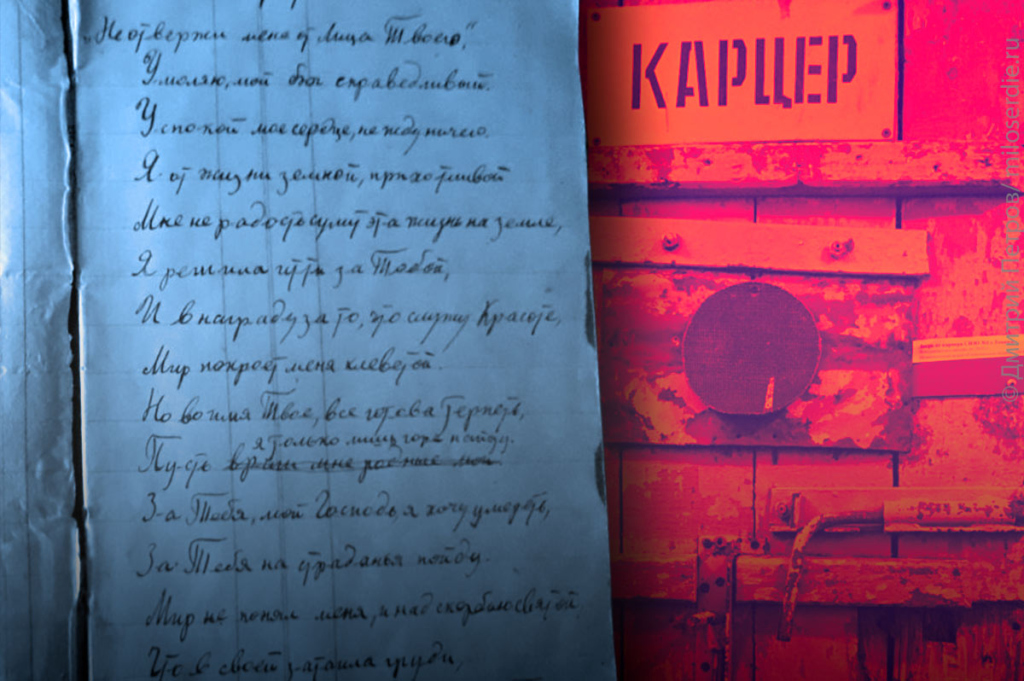 „Не отвержи мене от Лица Твоего,"
Умоляю, мой бог справедливый.
Успокой мое сердце, не жду ничего.
Я от жизни земной, прихотливой
Мне не радость сулит эта жизнь на земле,
Я решила идти за Тобой,
И в награду за то, что служу Красоте,
Мир покроет меня клеветой.
Но во имя Твое, все готова терпеть,
я только лишь горе найду.
Пусть враги мне родные мои
За Тебя, мой Господь, я хочу умереть,
За Тебя на страданья пойду.
Мир не понял меня, и над скорбью святой,
Что я в своей затаила груди,
КАРЦЕР
© Дмитрий Петров/ miloserdie.ru